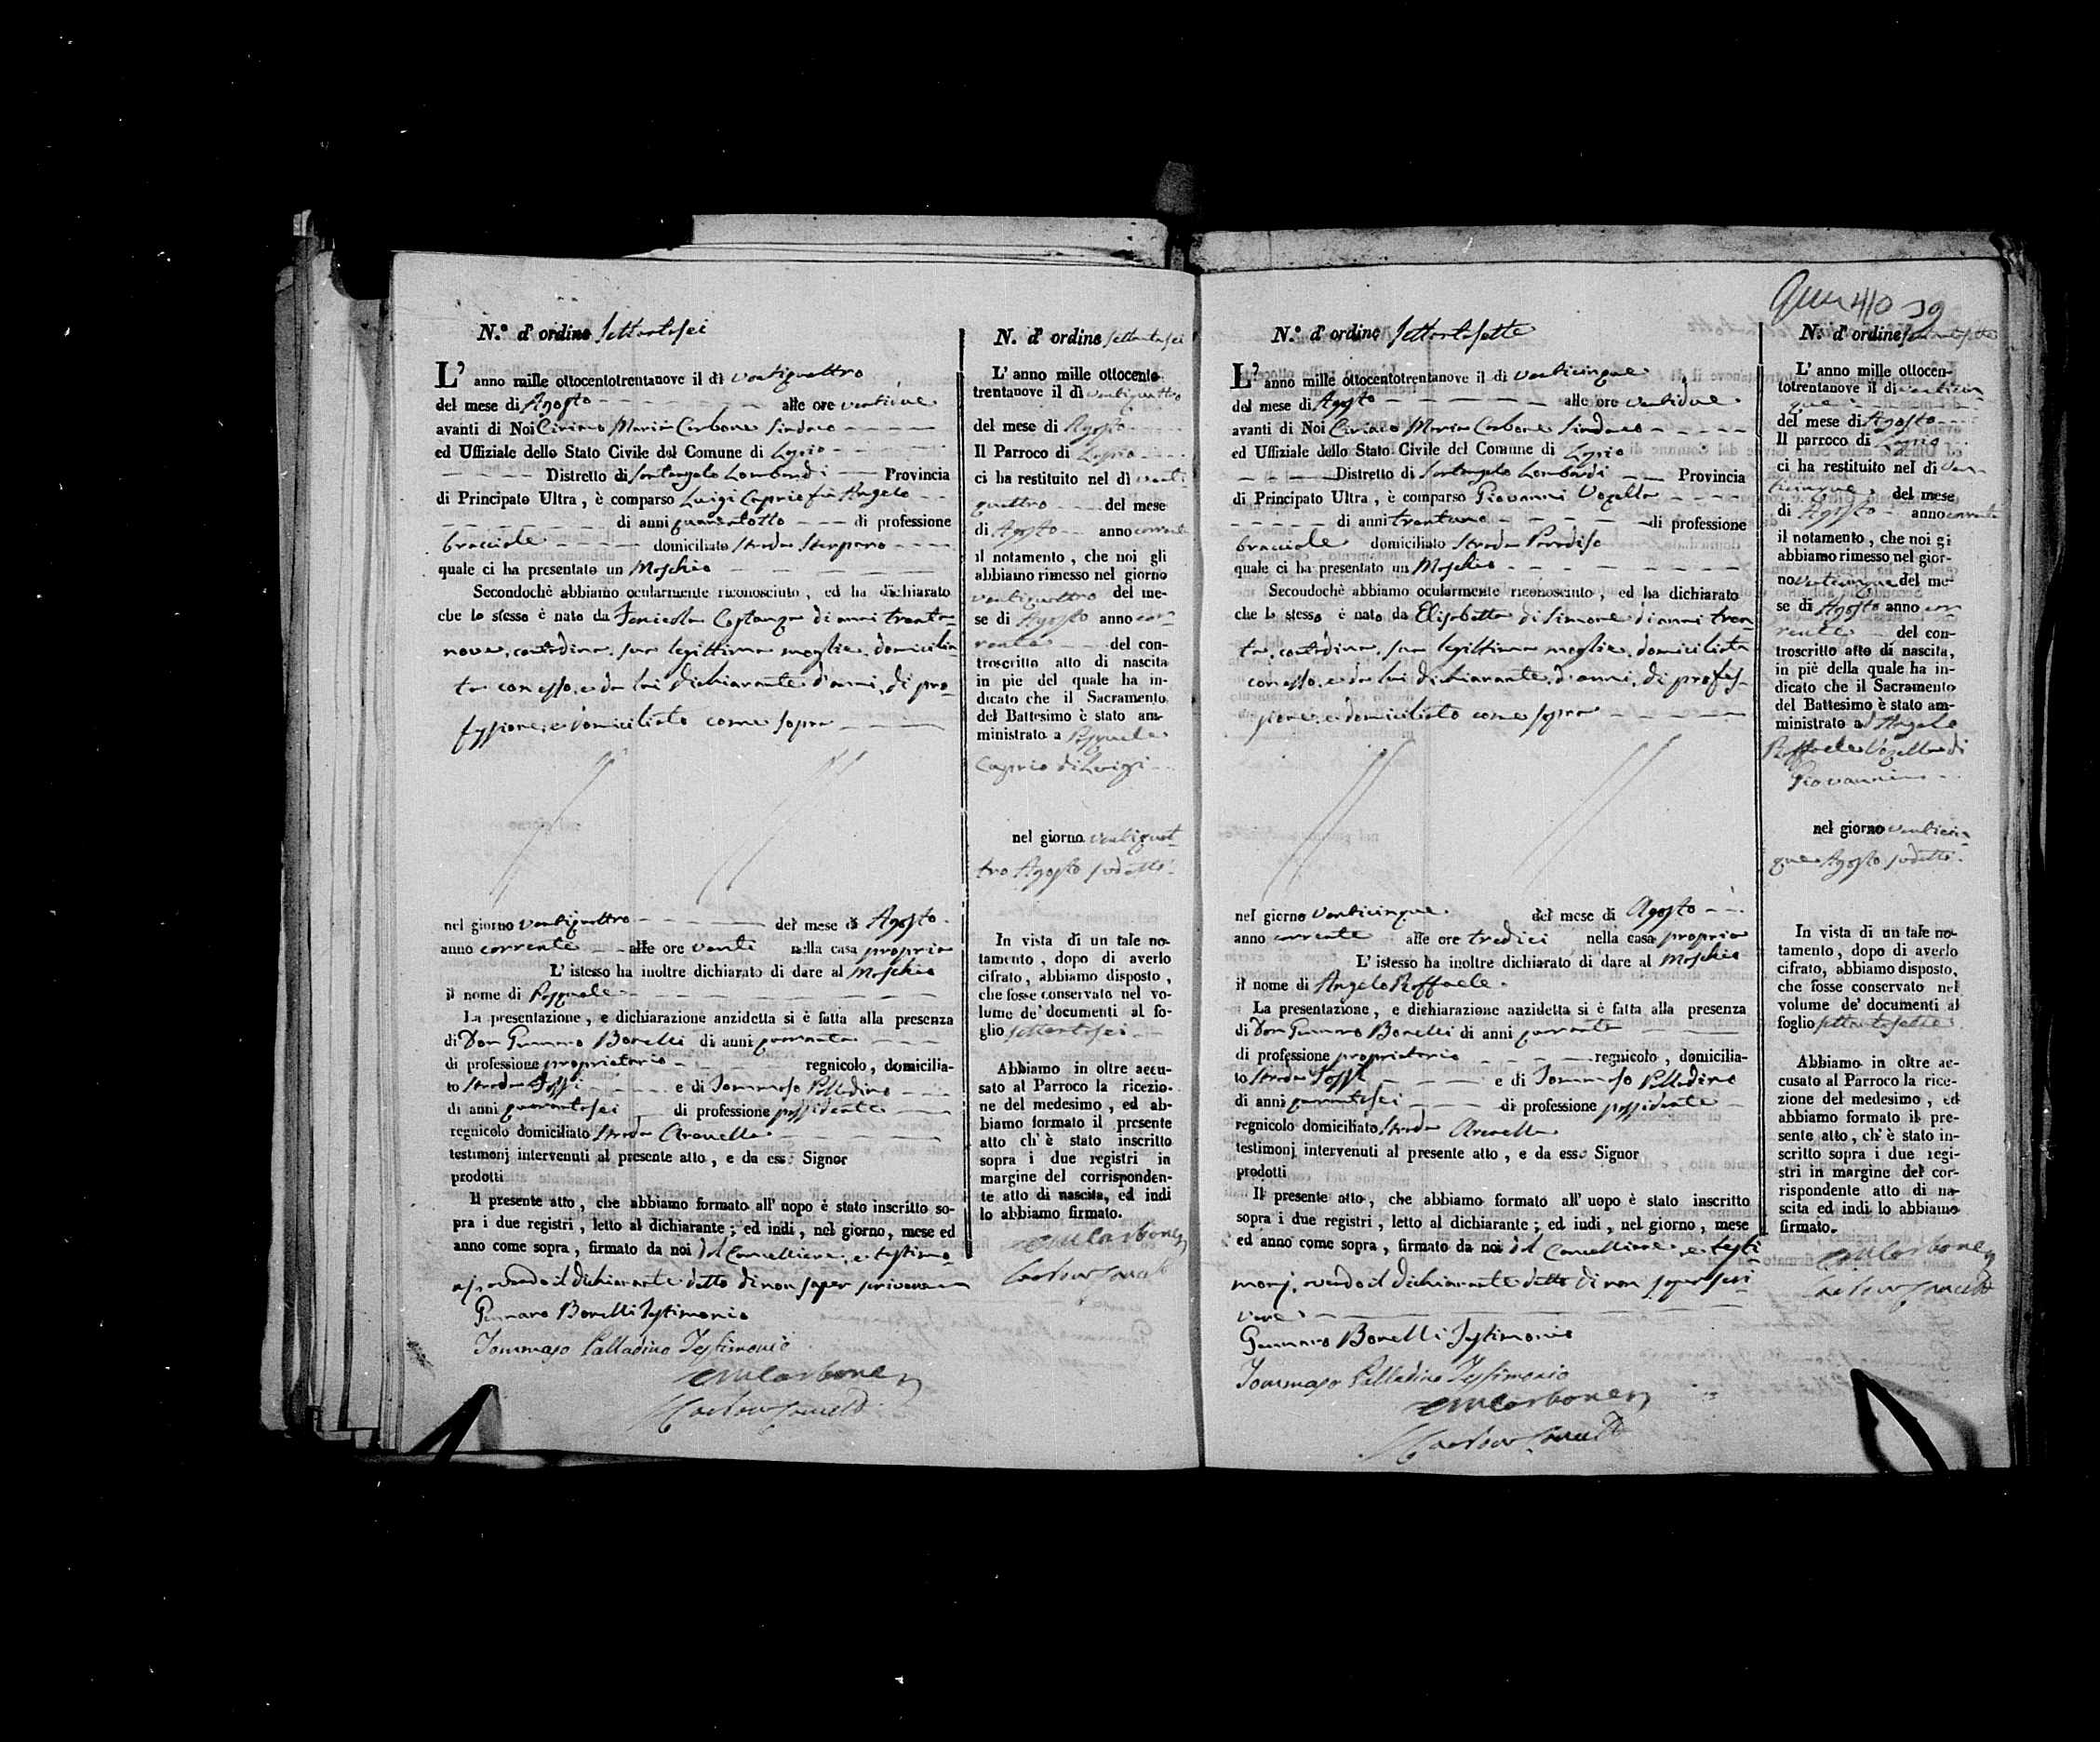 N.º d'ordine Settantasei
L' anno mille ottocentotrentanove il dì ventiquattro
del mese di Agosto alle ore ventidue
avanti di Noi Ciriaco Maria Carbone Sindaco
ed Uffiziale dello Stato Civile del Comune di Lyrio
Distretto di Santangelo Lombardi Provincia
di Principato Ultra, è comparso Luigi Caprio fu Angelo
di anni quarantotto di professione
bracciale domiciliato Strada
quale ci ha presentato un Maschio
Secondochè abbiamo ocularmente riconosciuto, ed ha dichiarato
che lo stesso è nato da Fenicola Costanza di anni trenta-
nove, contadina, sua legittima moglie, domicilia-
ta con esso, e da lui dichiarante d'anni, di pro-
fessione, e domiciliato come sopra
nel giorno ventiquattro del mese di Agosto
anno corrente alle ore venti nella casa propria
L' istesso ha inoltre dichiarato di dare al Maschio
il nome di Pasquale
La presentazione, e dichiarazione anzidetta si è fatta alla presenza
di Don Gennaro Bonelli di anni quaranta
di professione proprietario regnicolo, domicilia-
to Strada Fossi e di Tommaso Palladino
di anni quarantasei di professione possidente
regnicolo domiciliato Strada Aranella
testimonj intervenuti al presente atto, e da esso Signor
prodotti
Il presente atto, che abbiamo formato all' uopo è stato inscritto so-
pra i due registri, letto al dichiarante; ed indi, nel giorno, mese ed
anno come sopra, firmato da noi dal Cancelliere, e testimo
nj, avendo il dichiarante detto di non saper scrivere
Gennaro Bonelli Testimonio
Tommaso Palladino Testimonio
CMCarbone
N. d' ordine settantasei
L' anno mille ottocento-
trentanove il dì ventiquattro
del mese di Agosto
Il Parroco di Lyrio
ci ha restituito nel dì venti
quattro del mese
di Agosto anno corrente
il notamento, che noi gli
abbiamo rimesso nel giorno
ventiquattro del me-
se di Agosto anno cor-
rente del con-
troscritto atto di nascita
in pie del quale ha in-
dicato che il Sacramento
del Battesimo è stato am-
ministrato a Pasquale
Caprio di Luigi
nel giorno ventiquat-
tro Agosto sudetto
In vista di un tale no-
tamento, dopo di averlo
cifrato, abbiamo disposto,
che fosse conservato nel vo-
lume de' documenti al fo-
glio settantasei
Abbiamo in oltre accu-
sato al Parroco la ricezio-
ne del medesimo, ed ab-
biamo formato il presente
atto ch' è stato inscritto
sopra i due registri in
margine del corrisponden-
te atto di nascita, ed indi
lo abbiamo firmato.
CMCarbone
39
N.º d' ordine Settantasette
L' anno mille ottocentotrentanove il dì venticinque
del mese di Agosto alle ore ventidue
avanti di Noi Ciriaco Maria Carbone Sindaco
ed Uffiziale dello Stato Civile del Comune di Lyrio
Distretto di Santangelo Lombardi Provincia
di Principato Ultra, è comparso Giovanni Vozella
di anni trentuno di professione
bracciale domiciliato Strada Paradiso
quale ci ha presentato un Maschio
Secondochè abbiamo ocularmente riconosciuto, ed ha dichiarato
che lo stesso è nato da Elisabetta di Simone di anni tren
ta, contadina, sua legittima moglie, domiciliata
con esso, e da lui dichiarante, d'anni, di profes-
sione, e domiciliato come sopra
nel giorno venticinque del mese di Agosto
anno corrente alle ore tredici nella casa propria
L' istesso ha inoltre dichiarato di dare al Maschio
il nome di Angelo Raffaele
La presentazione, e dichiarazione anzidetta si è fatta alla presenza
di Don Gennaro Bonelli di anni quaranta
di professione proprietario regnicolo, domicilia-
to Strada Fossi e di Tommaso Palladino
di anni quarantasei di professione possidente
regnicolo domiciliato Strada Aranella
testimonj intervenuti al presente atto, e da esso Signor
prodotti
Il presente atto, che abbiamo formato all' uopo è stato inscritto
sopra i due registri, letto al dichiarante; ed indi, nel giorno, mese
ed anno come sopra, firmato da noi dal Cancelliere e testi
monj, avendo il dichiarante detto di non saper scri-
vere
Gennaro Bonelli Testimonio
Tommaso Palladino Testimonio
CMCarbone
N. d' ordine settantasette
L' anno mille ottocen-
totrentanove il dì venticin
que
del mese di Agosto
Il parroco di Lyrio
ci ha restituito nel dì ven
ticinque del mese
di Agosto anno corrente
il notamento, che noi gi
abbiamo rimesso nel gior-
no venticinque del me-
se di Agosto anno cor-
rente del con-
troscritto atto di nascita,
in piè della quale ha in-
dicato che il Sacramento
del Battesimo è stato am-
ministrato ad Angelo
Raffaele Vozella di
Giovanni
nel giorno venticin-
que Agosto sudetto
In vista di un tale no-
tamento, dopo di averlo
cifrato, abbiamo disposto,
che fosse conservato nel
volume de' documenti al
foglio settantasette
Abbiamo in oltre ac-
cusato al Parroco la rice-
zione del medesimo, ed
abbiamo formato il pre-
sente atto, ch' è stato in-
scritto sopra i due regi-
stri in margine del cor-
rispondente atto di na-
scita ed indi lo abbiamo
firmato.
CMCarbone